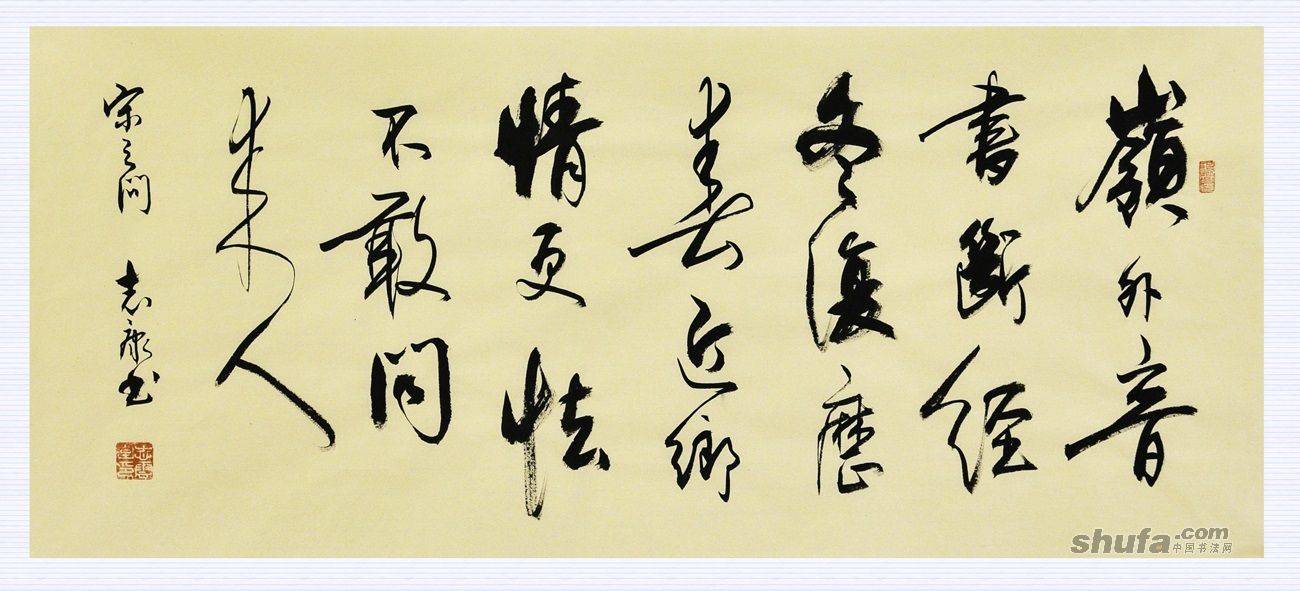 嶺外音
書斷經
冬復歷
春近鄉
情更怯
不敢問
来人
宋之问 志康书
shufa.com
中国书法网